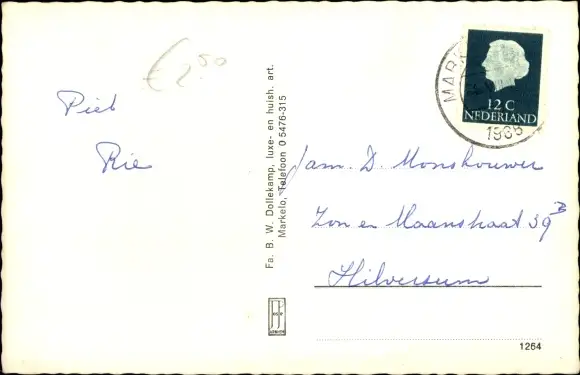 €2.50
Piet
Rie
Fa. B. W. Dollekamp, luxe- en huish. art.
Markelo, Telefoon 0 5476-315
MARK
12 C
NEDERLAND
Fam. D. Monshouwer
Zon en Maanstraat 39 B
Hilversum
1264